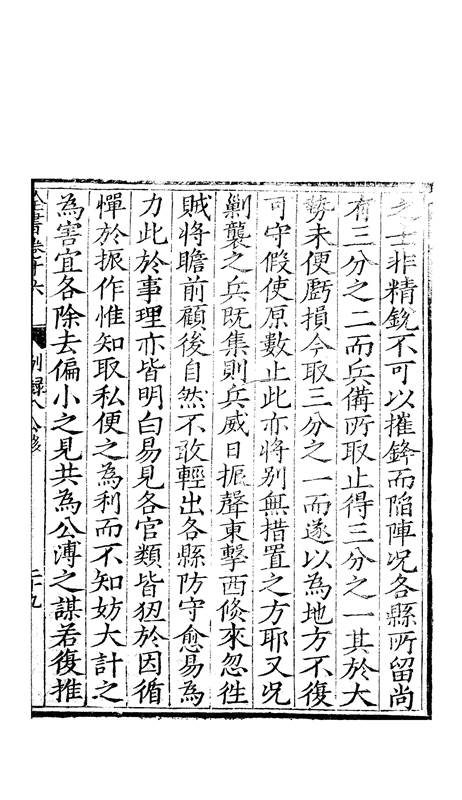 之士非精銳不可以摧鋒而陷陣况各縣所留尚
有三分之二而兵備所取止得三分之一其於大
勢未便虧損今取三分之一而遂以為地方不復
可守假使原數止此亦將別無措置之方耶又况
剿襲之兵既集則兵威日振聲東擊西倐來忽徃
賊將瞻前顧後自然不敢輕出各縣防守愈易為
力此於事理亦皆明白易見各官類皆狃於因循
憚於振作惟知取私便之為利而不知妨大計之
為害宜各除去偏小之見共為公溥之謀若復推
全書卷十六 別録八 公移 二十九